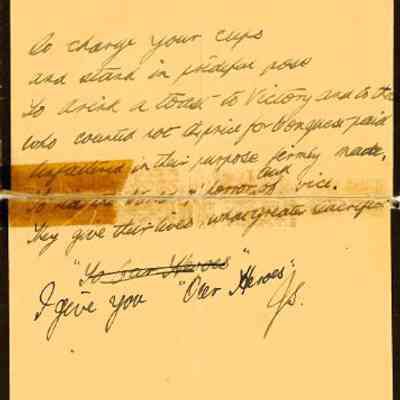 To charge your cups
and stand in prideful pose
To drink a toast to Victory and to those
who counted not the price for Conquest paid
Unfaltered in their purpose firmly made,
terror, or vice.
They give their lives, what greater Sacrifice
"To Our Heroes"
I give you "Our Heroes"